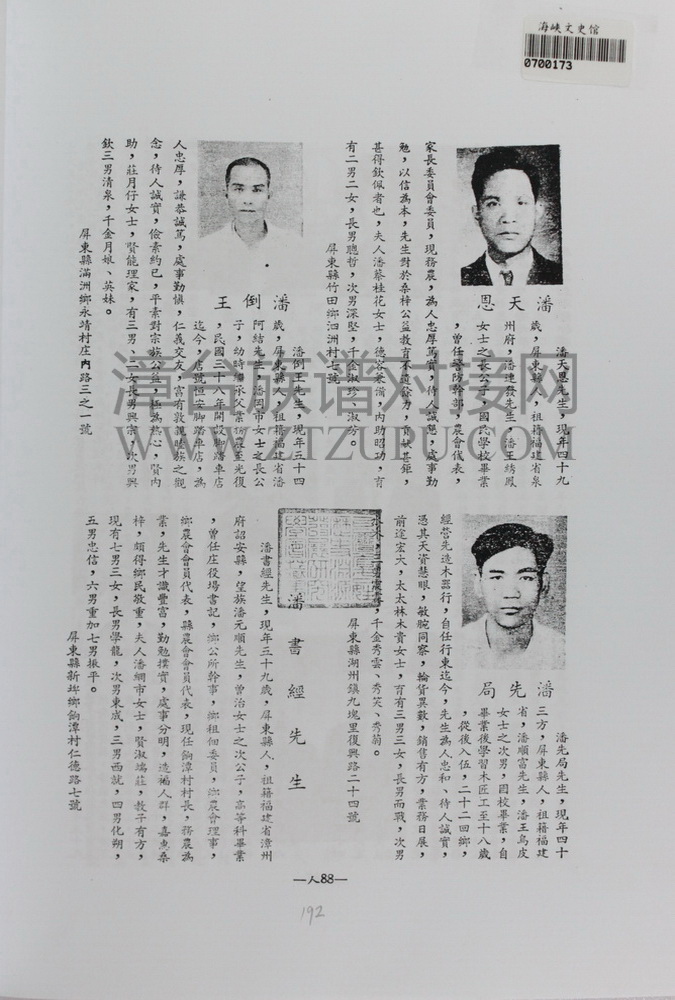 海峡文史馆
0700173
潘天恩
潘天恩先生，現年四十九
歲，屏東縣人，祖籍福建省泉
州府，潘連發先生，潘王綉鳳
女士之長公子，國民學校畢業
，曾任警防幹部，農會代表，
家長委員會委員，現務農，為人忠厚篤實，待人誠懇，處事勤
勉，以信為本，先生對於桑梓公益教育不遺餘力，貢獻甚鉅，
甚得欽佩者也，夫人潘蔡桂花女士，德容兼備，內助昭功，育
有二男二女，長男聰哲，次男深堅，千金淑珍、淑芳。
屏東縣竹田鄉泗洲村七號
潘倒王
潘倒王先生，現年五十四
歲，屏東縣人，祖籍福建省潘
阿結先生，潘罔市女士之長公
子，幼時繼承父業務農至光復
，民國三十八年開設脚踏車店
迄今，店號恒安脚踏車店，為
人忠厚，謙恭誠篤，處事勤慎，仁義交友，富有敦親睦族之觀
念，待人誠實，儉素約已，平素對宗族公益，極為熱心，賢內
助，莊月仔女士，賢能理家，有三男、二女長男興宗，次男興
欽三男清泉，千金月娘、英妹。
屏東縣滿洲鄉永靖村庄內路三之一號
潘先局
潘先局先生，現年四十
三方，屏東縣人，祖籍福建
省，潘順富先生，潘王烏皮
女士之次男，國校畢業，自
畢業後學習木匠工至十八歲
，從後入伍，二十二回鄉，
經營先造木器行，自任行東迄今，先生為人忠和、待人誠實，
憑其天資慧眼，敏腕同察，輪貨異數，銷售有方，業務日展，
前途宏大，太太林木貴女士，育有三男三女，長男而戰，次男
千金秀雲、秀笑、秀菊。
屏東縣湖州鎮九塊里復興路二十四號
潘書經先生
潘書經先生，現年三十九歲，屏東縣人，祖籍福建省漳州
府詔安縣，望族潘元順先生，曾治女士之次公子，高等科畢業
，曾任庄役場書記，鄉公所幹事，鄉租佃委員，鄉農會理事，
鄉農會會員代表，縣農會會員代表，現任餉潭村村長，務農為
業，先生才識豐富，勤勉撲實，處事分明，造福人群，嘉惠桑
梓，頗得鄉民敬重，夫人潘網市女士，賢淑端莊，教子有方，
現有七男三女，長男學龍，次男東成，三男西就，四男化朔，
五男忠信，六男重加七男振平。
屏東縣新埤鄉餉潭村仁德路七號
—人88—
192
漳台族谱对接网
WWW.ZTZUPU.COM